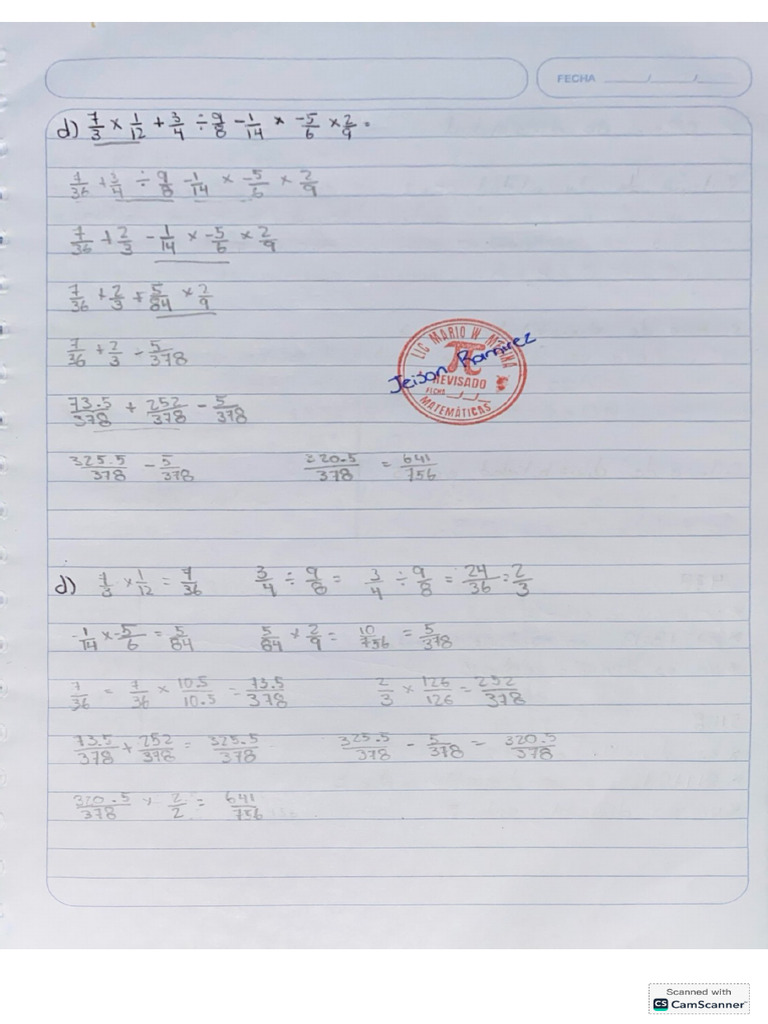 FECHA ___/___/___
d) 7/3 × 1/12 + 3/4 ÷ 9/8 - 1/14 × -5/6 × 2/9 =
7/36 + 3/4 ÷ 9/8 - 1/14 × -5/6 × 2/9
7/36 + 2/3 - 1/14 × -5/6 × 2/9
7/36 + 2/3 + 5/84 × 2/9
7/36 + 2/3 - 5/378
73.5/378 + 252/378 - 5/378
325.5/378 - 5/378 320.5/378 = 641/756
LIC MARIO W MEDINA
Jeison Ramirez
REVISADO
FECHA __/__/__
MATEMÁTICAS
d) 7/3 × 1/12 = 7/36 3/4 ÷ 9/8 = 3/4 ÷ 9/8 = 24/36 = 2/3
-1/14 × -5/6 = 5/84 5/84 × 2/9 = 10/756 = 5/378
7/36 = 7/36 × 10.5/10.5 = 73.5/378 2/3 × 126/126 = 252/378
73.5/378 + 252/378 = 325.5/378 325.5/378 - 5/378 = 320.5/378
320.5/378 × 2/2 = 641/756
Scanned with
CS CamScanner